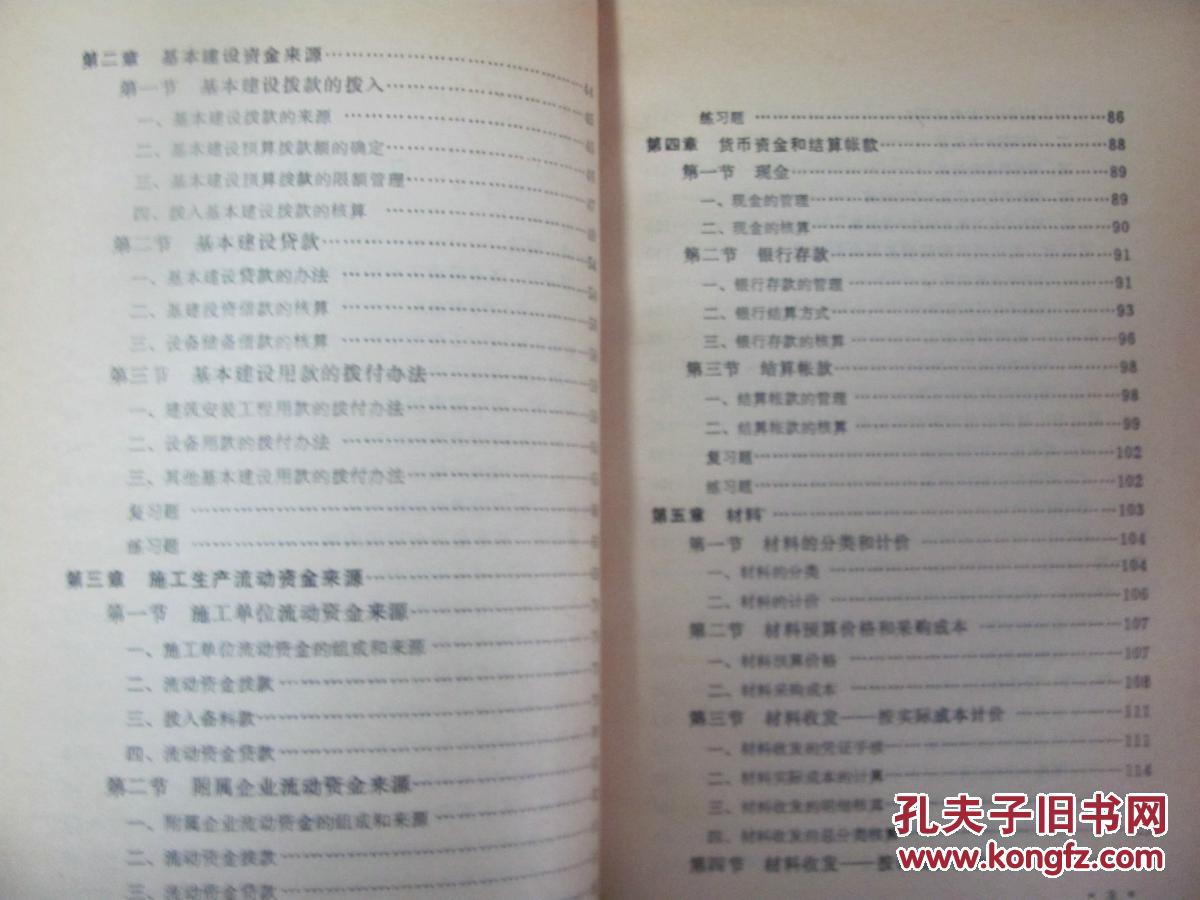 第二章 基本建设资金来源
第一节 基本建设拨款的拨入……44
一、基本建设拨款的来源
二、基本建设预算拨款额的确定
三、基本建设预算拨款的限额管理
四、拨入基本建设拨款的核算
第二节 基本建设贷款
一、基本建设贷款的办法
二、基建投资借款的核算
三、设备储备借款的核算
第三节 基本建设用款的拨付办法
一、建筑安装工程用款的拨付办法
二、设备用款的拨付办法
三、其他基本建设用款的拨付办法
复习题
练习题
第三章 施工生产流动资金来源
第一节 施工单位流动资金来源
一、施工单位流动资金的组成和来源
二、流动资金拨款
三、拨入备料款
四、流动资金贷款
第二节 附属企业流动资金来源
一、附属企业流动资金的组成和来源
二、流动资金拨款
三、流动资金贷款
练习题……86
第四章 货币资金和结算帐款……88
第一节 现金……89
一、现金的管理……89
二、现金的核算……90
第二节 银行存款……91
一、银行存款的管理……91
二、银行结算方式……93
三、银行存款的核算……96
第三节 结算帐款……98
一、结算帐款的管理……98
二、结算帐款的核算……99
复习题……102
练习题……102
第五章 材料……103
第一节 材料的分类和计价……104
一、材料的分类……104
二、材料的计价……106
第二节 材料预算价格和采购成本……107
一、材料预算价格……107
二、材料采购成本……108
第三节 材料收发——按实际成本计价……111
一、材料收发的凭证手续……111
二、材料实际成本的计算……114
三、材料收发的明细核算
四、材料收发的总分类核算
第四节 材料收发——按
孔夫子旧书网
www.kongfz.com